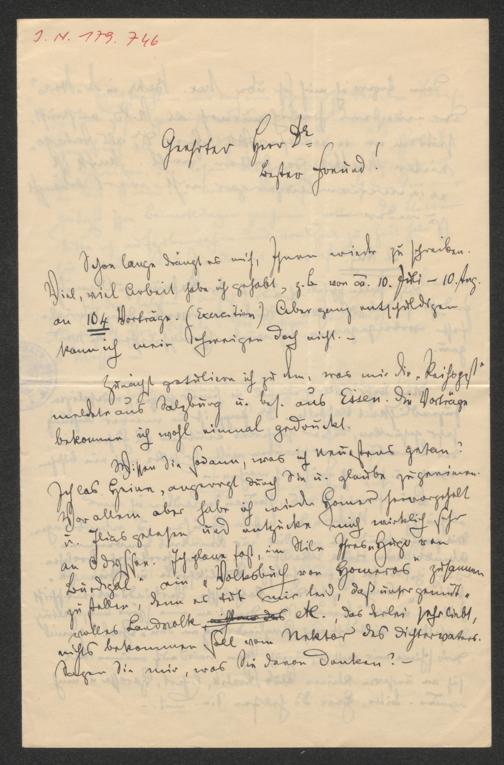 J. N. 179.746
Geehrter Herr Dr.
bester Freund!
Schon lange drängt es mich, Ihnen wieder zu schreiben.
Viel, viel Arbeit habe ich gehabt, z. b. von 10. Juli – 10. Aug.
an 104 Vorträge. (Exercitien). Aber ganz entschuldigen
kann ich mein Schweigen doch nicht. –
Zunächst gratuliere ich zu dem, was mir die „Reichspost“
meldete aus Salzburg u. bes. aus Essen. Die Vorträge
bekomme ich wohl einmal gedruckt.
Wissen Sie sodann, was ich neuestens getan?
Ich las Heine, angeregt durch Sie u. glaube zu
Vor allem aber habe ich wieder Homer hervorgeholt
u. Ilias gelesen und entzücke mich wirklich sehr
an Odyssee. Ich plane fast, im Stile von
ein „Volksbuch von Homeros“ zusammen
zu stellen, denn es tut mir leid, daß unser gemüt-
volles Landvolk, etc., das derlei sehr liebt,
nichts bekommen soll vom Nektar des Dichtervaters.
Sagen Sie mir, was Sie davon denken? –